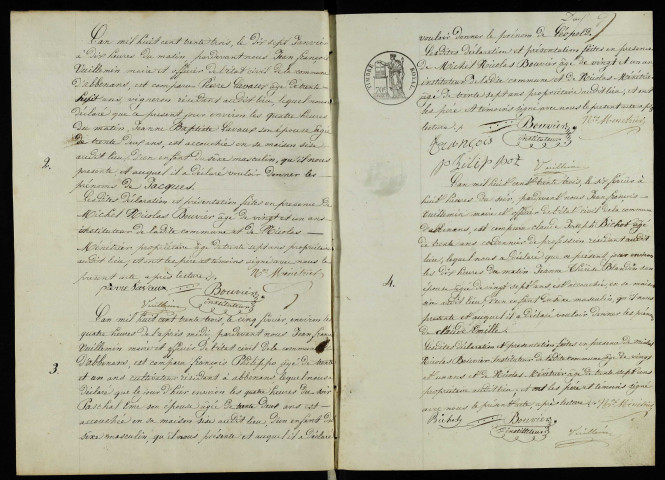 2.
L'an mil huit cent trente trois, le dix sept Janvier
à dix heures du matin, pardevant nous Jean François
Vuillemin maire et officier de l'état civil de la commune
d'abbenans, est comparu Pierre Savaux âgé de trente
sept ans, vigneron résidant audit lieu, lequel nous a
déclaré que ce présent jour environ les quatre heures
du matin, Jeanne Baptiste Savaus son épouse âgée
de trente ans, est accouchée en sa maison sise
audit lieu d'un enfant de sexe masculin, qu'il nous
présente et auquel il a déclaré vouloir donner les
prénoms de Jacques.
Lesdites déclaration et présentation faites en présence de
Michel Nicolas Bouvier âgé de vingt et un ans
instituteur de ladite commune et de Nicolas
Ménétrier propriétaire âgé de trente sept ans propriétaire
audit lieu, et ont les père et témoins signé avec nous le
présent acte, après lecture.
Bouvier
instituteur
Vuillemin
3.
L'an mil huit cent trente trois, le cinq février, environ les
quatre heures de l'après midi pardevant nous Jean François
Vuillemin maire et officier de l'état civil de la commune
d'abbenans, est comparu françois Philippe, âgé de trente
et un ans cultivateur résidant à abbenans, lequel nous a
déclaré que le jour d'hier environ les quatre heures du soir
son épouse agée de trente deux ans est
accouchée en sa maison sise audit lieu d'un enfant du
sexe masculin, qu'il nous présente et auquel il a déclaré
vouloir donner le prénom de Léopold.
Lesdites déclaration et présentation faites en présence
de Michel Nicolas Bouvier âgé de vingt et un ans
instituteur de ladite commune et de Nicolas Ménétrier
âgé de trente sept ans propriétaire audit lieu, et ont
les père et témoins signé avec nous le présent acte après
lecture.
TIMBRE ROYAL
françois
philippe
Bouvier
instituteur
Vuillemin
4.
L'an mil huit cent trente trois, le dix février à
huit heures du soir, pardevant nous Jean françois
Vuillemin maire et officier de l'état civil de la commune
d'abbenans, est comparu claude Joseph Bichet âgé
de trente ans de profession résidant audit
lieu, lequel nous a déclaré que ce présent jour environ
les dix heures du matin Jeanne son
épouse âgée de vingt sept ans est accouchée en sa maison
sise audit lieu, d'un enfant de sexe masculin, qu'il nous
présente et auquel il a déclaré vouloir donner les prénoms
de Claude
Lesdites déclaration et présentation faites en présence de Michel
Nicolas Bouvier instituteur de ladite commune âgé de vingt
et un ans et de Nicolas Ménétrier âgé de trente sept ans
propriétaire audit lieu, et ont les père et témoins signé
avec nous le présent acte, après lecture.
Bichet
Bouvier
instituteur
Vuillemin